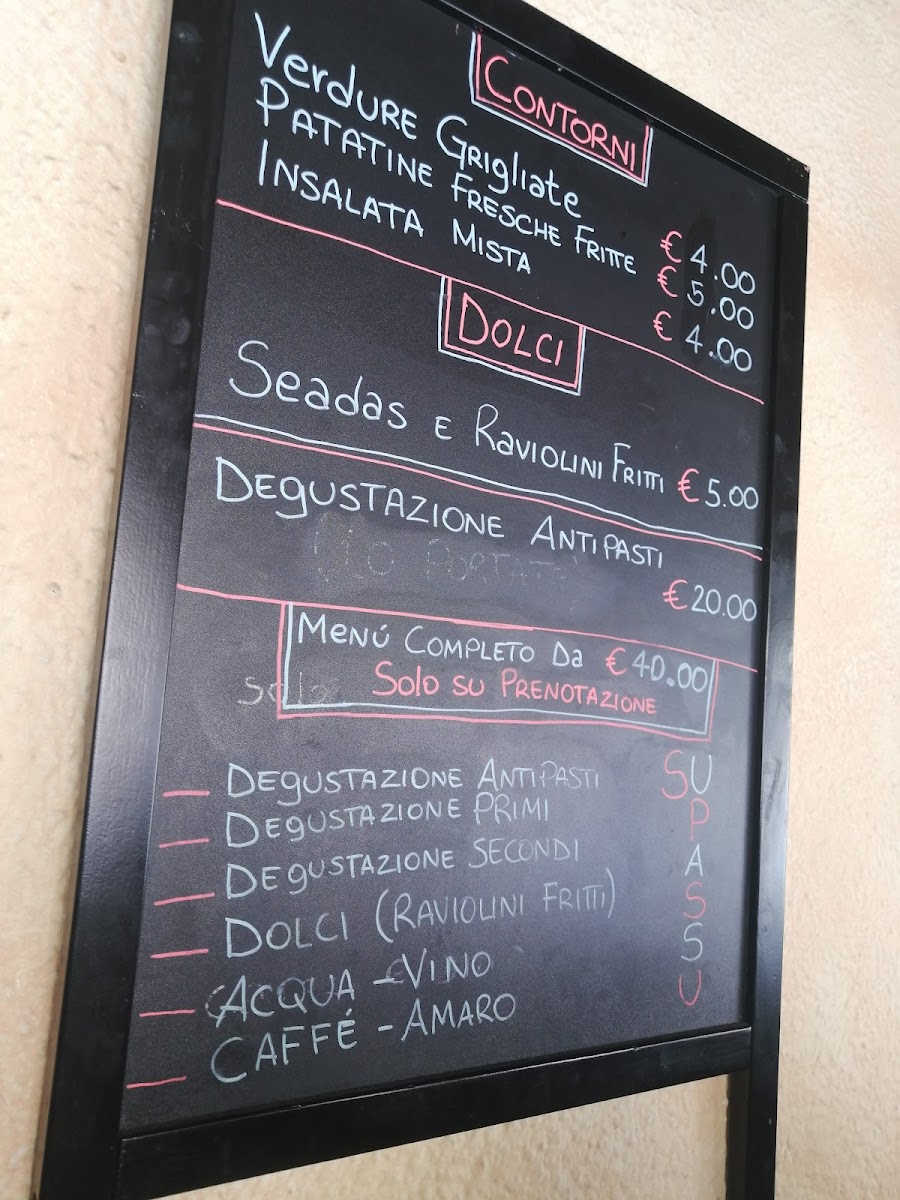 CONTORNI
Verdure Grigliate € 4.00
Patatine Fresche Fritte € 5.00
Insalata Mista € 4.00
DOLCI
Seadas e Raviolini Fritti € 5.00
Degustazione Antipasti
€ 20.00
Menú Completo Da € 40.00
Solo su Prenotazione
Degustazione Antipasti
Degustazione Primi
Degustazione Secondi
Dolci (Raviolini Fritti)
Acqua - Vino
Caffé - Amaro
SU PASSU